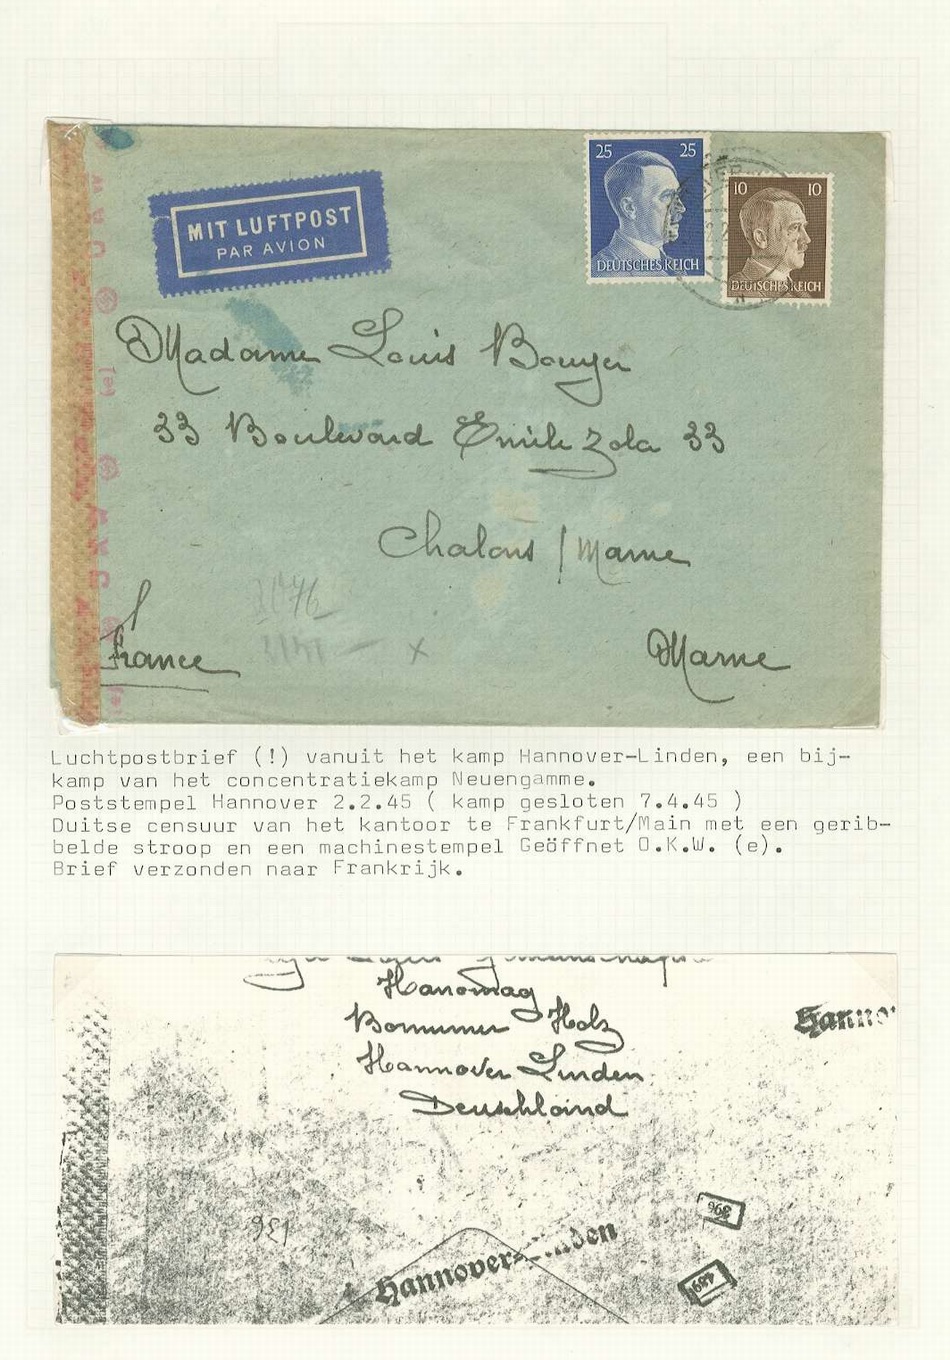 MIT LUFTPOST
PAR AVION
25 25
DEUTSCHES REICH
10 10
DEUTSCHES REICH
Madame Louis Bouyer
33 Boulevard Emile Zola 33
Chalons / Marne
France
Marne
Luchtpostbrief (!) vanuit het kamp Hannover-Linden, een bij-
kamp van het concentratiekamp Neuengamme.
Poststempel Hannover 2.2.45 ( kamp gesloten 7.4.45 )
Duitse censuur van het kantoor te Frankfurt/Main met een gerib-
belde stroop en een machinestempel Geöffnet O.K.W. (e).
Brief verzonden naar Frankrijk.
Hanomag
Bornumer Holz
Hannover Linden
Deuschland
Hanno
396
Hannover-Linden
489
136